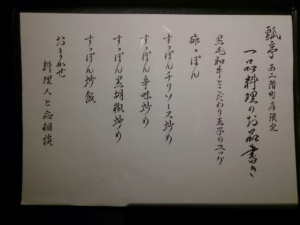 瓢亭 五二階町店限定
一品料理のお品書き
黒毛和牛とこだわり玉子のユッケ
酢っぽん
すっぽんチリソース炒め
すっぽん辛味炒め
すっぽん黒胡椒炒め
すっぽん炒飯
おまかせ
料理人と応相談